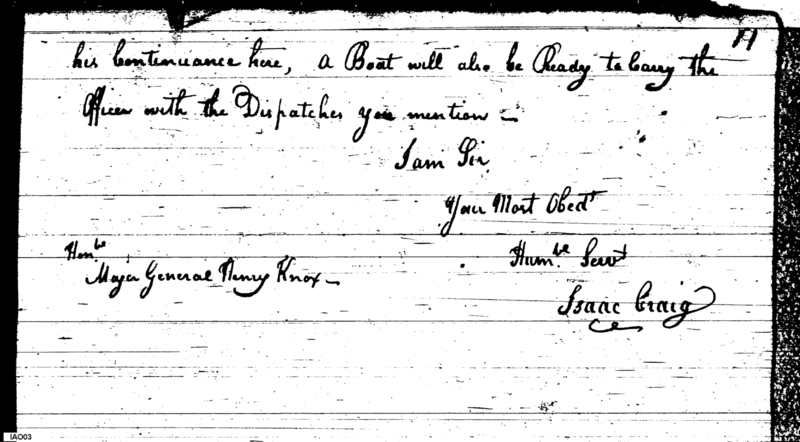 11
his Continuance here, a Boat will also be Ready to Carry the
Officer with the Dispatches you mention —
I am Sir
Your Most Obedt
Honbe
Humbe Servt
Major General Henry Knox —
Isaac Craig
IAO03